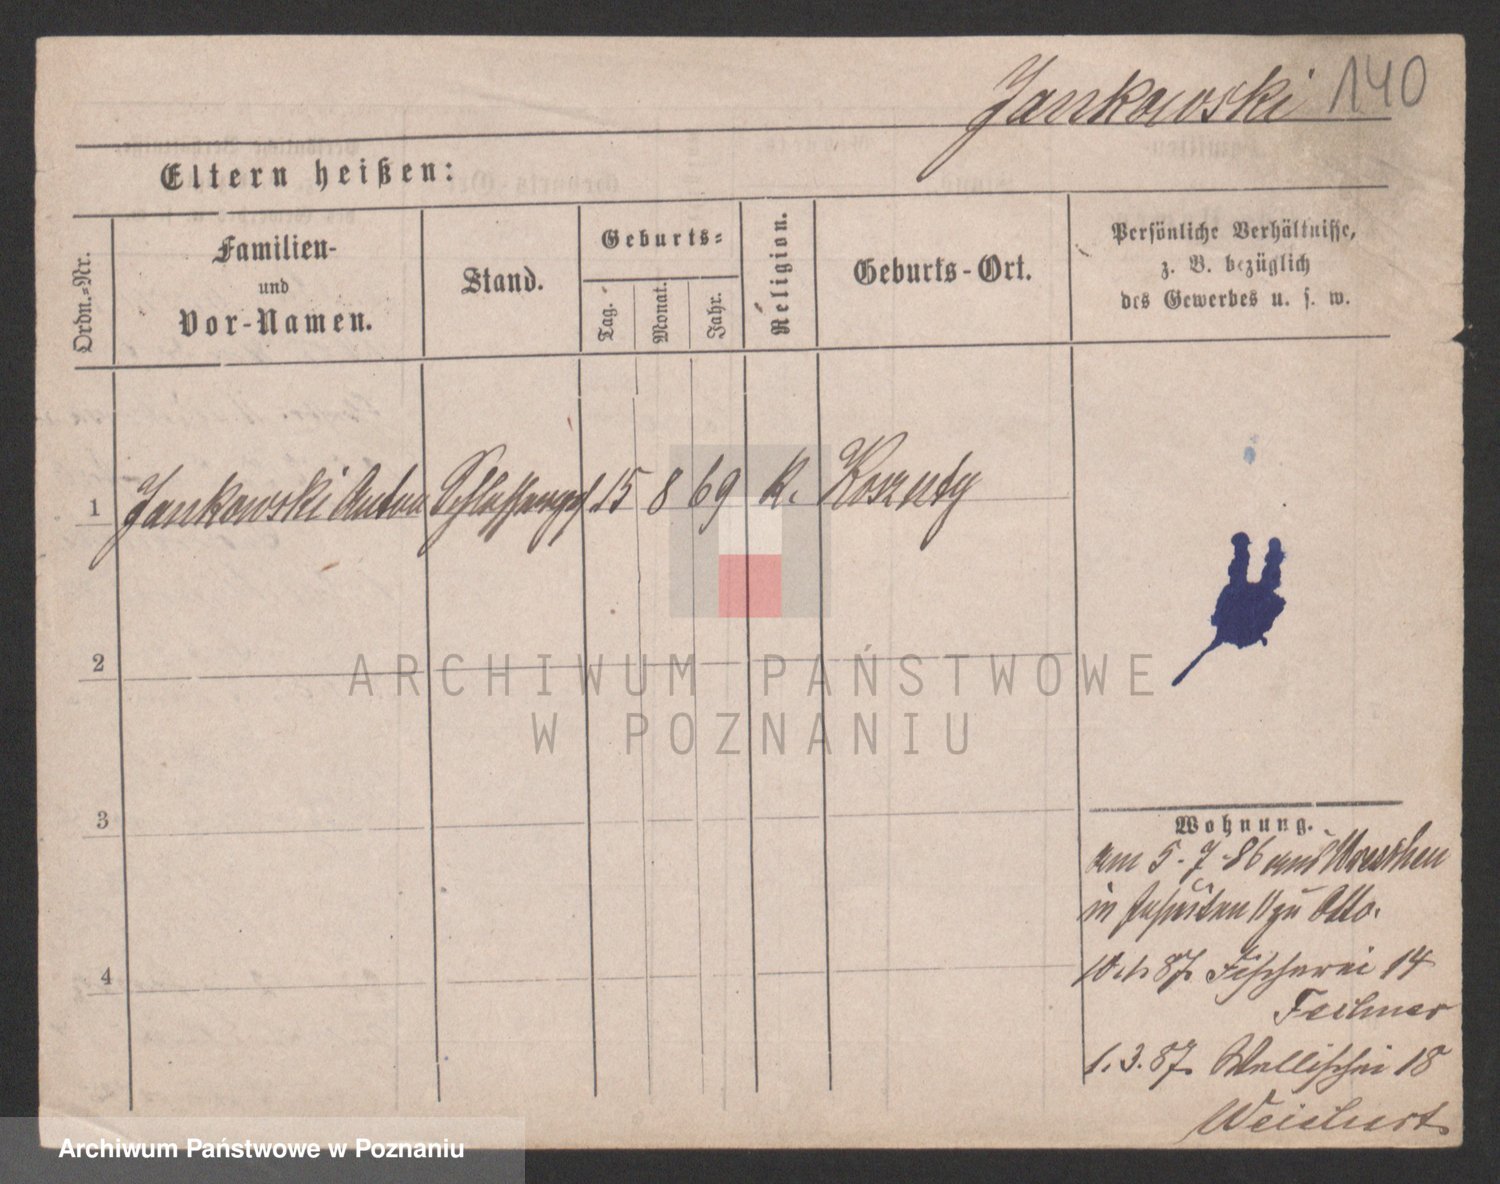 Jankowski 140
Eltern heißen:
Ordn.-Nr.
Familien-
und
Vor-Namen.
Stand.
Geburts-
Tag.
Monat.
Jahr.
Religion.
Geburts-Ort.
Persönliche Verhältnisse,
z. B. bezüglich
des Gewerbes u. s. w.
1 Jankowski Anton 15 8 69 K. Koszuty
2
3
4
Wohnung.
am 5.7.86 aus Wreschen
in zu Otto.
87. Fischerei 14
Fechner
1.3.87. Wallischei 18
Weichert
ARCHIWUM PAŃSTWOWE
W POZNANIU
Archiwum Państwowe w Poznaniu